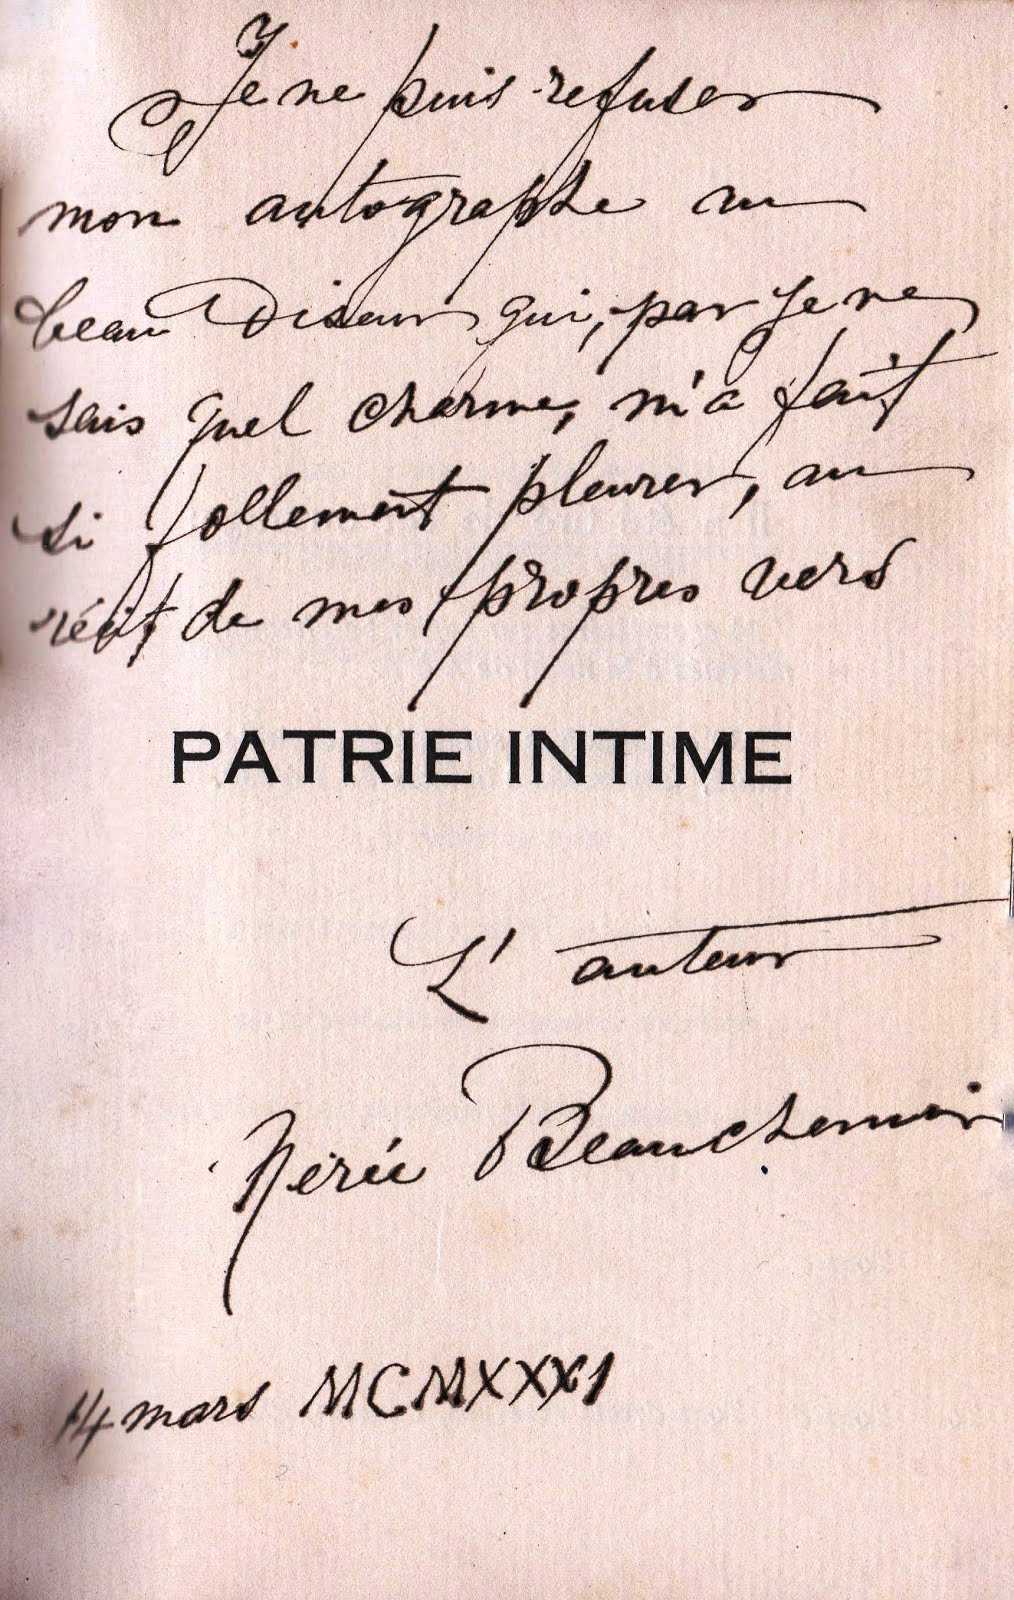 Je ne puis refuser
mon autographe au
beau Diseur qui, par je ne
sais quel charme, m'a fait
si follement pleurer, au
récit de mes propres vers
PATRIE INTIME
L'auteur
Nérée Beauchemin
14 mars MCMXXXI